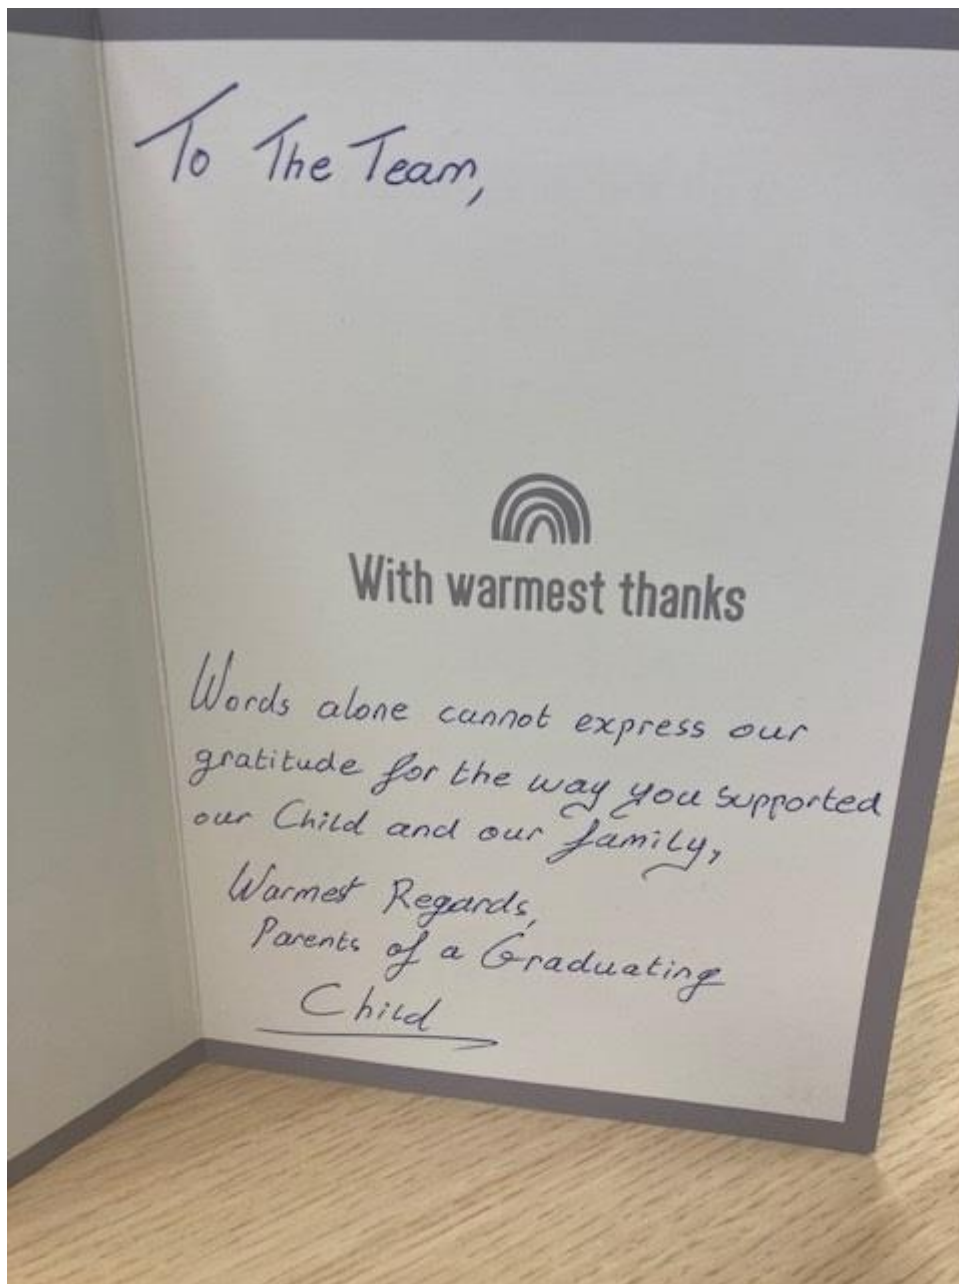 To The Team,
With warmest thanks
Words alone cannot express our
gratitude for the way you supported
our Child and our family,
Warmest Regards,
Parents of a Graduating
Child